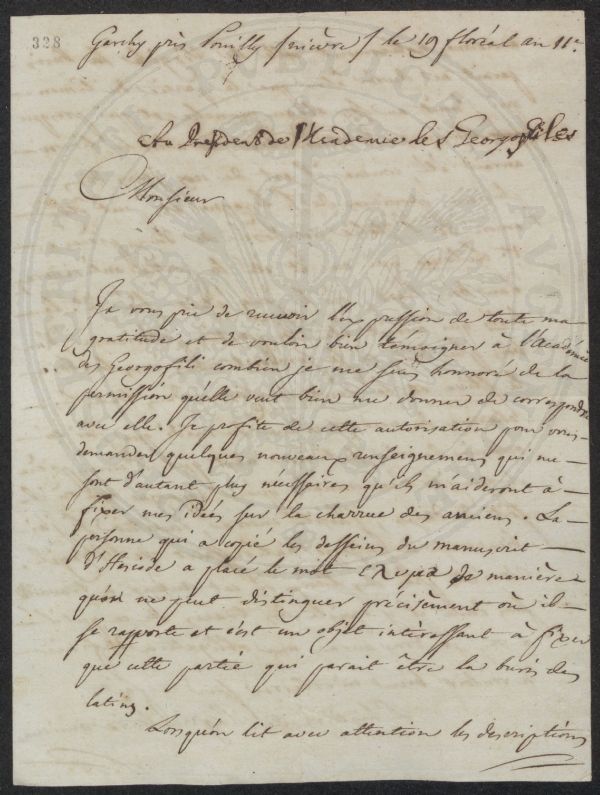 328
Garchy près Pouilly /nièvre/ le 19 floréal an 11e
Au President de l'Academie des Georgofiles
Monsieur
Je vous prie de recevoir l'expression de toute ma
gratitude et de vouloir bien temoigner à l'Académie
des Georgofili combien je me suis honoré de la
permission qu'elle veut bien me donner de correspondre
avec elle. Je profite de cette autorisation pour vous
demander quelques nouveaux renseignemens qui me
sont d'autant plus nécessaires qu'ils m'aideront à
fixer mes idées sur la charrue des anciens. La
personne qui a copié les desseins du manuscrit
d'Hesiode a placé le mot de manière
qu'on ne peut distinguer précisèment où il
se rapporte et c'est un objet intèressant à fixer
que cette partie qui parait être la buris des
latins.
Lorsqu'on lit avec attention les descriptions